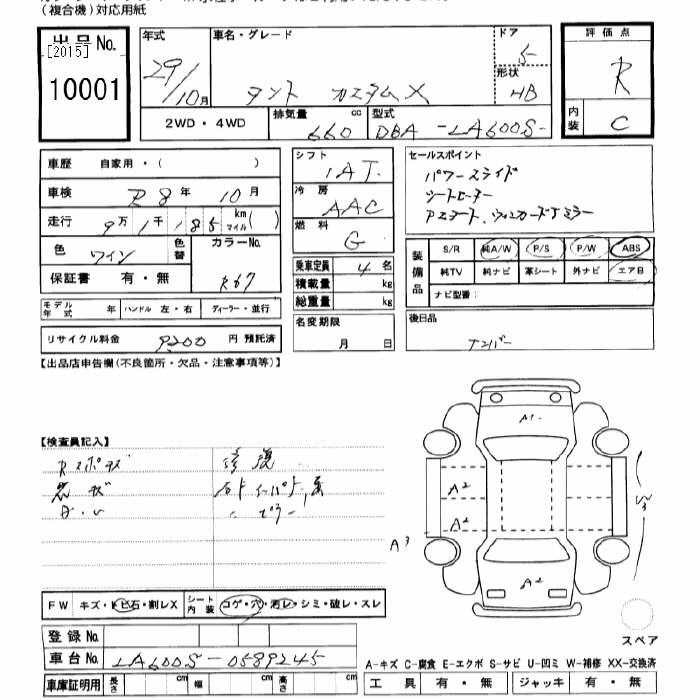 (複合機)対応用紙
出品No.
[2015]
10001
年式 29/10月
車名・グレード タント カスタムX
ドア 5
形状 HB
評価点 R
内装 C
2WD・4WD
排気量 660 cc
型式 DBA-LA600S-
車歴 自家用・( )
車検 R8年 10月
走行 9万1千185 km マイル( )
色 ワイン
色替
カラーNo. R67
保証書 有・無
シフト IAT
冷房 AAC
燃料 G
乗車定員 4名
積載量 kg
総重量 kg
名変期限 月 日
セールスポイント
パワースライド
シートヒーター
装備品
S/R 純A/W P/S P/W ABS
純TV 純ナビ 革シート 外ナビ エアB
ナビ型番:
モデル年式 年 ハンドル 左・右 ディーラー・並行
リサイクル料金 9200円 預託済
後日品 ナンバー
【出品店申告欄(不良箇所・欠品・注意事項等)】
【検査員記入】
修復
A1
A2
A2
A3
W3
A2
FW キズ・トビ石・割レX
シート内装 コゲ・穴・汚レ・シミ・破レ・スレ
登録No.
車台No. LA600S-0589245
車庫証明用 長さ cm 幅 cm 高さ cm
スペア
A-キズ C-腐食 E-エクボ S-サビ U-凹ミ W-補修 XX-交換済
工具 有・無 ジャッキ 有・無